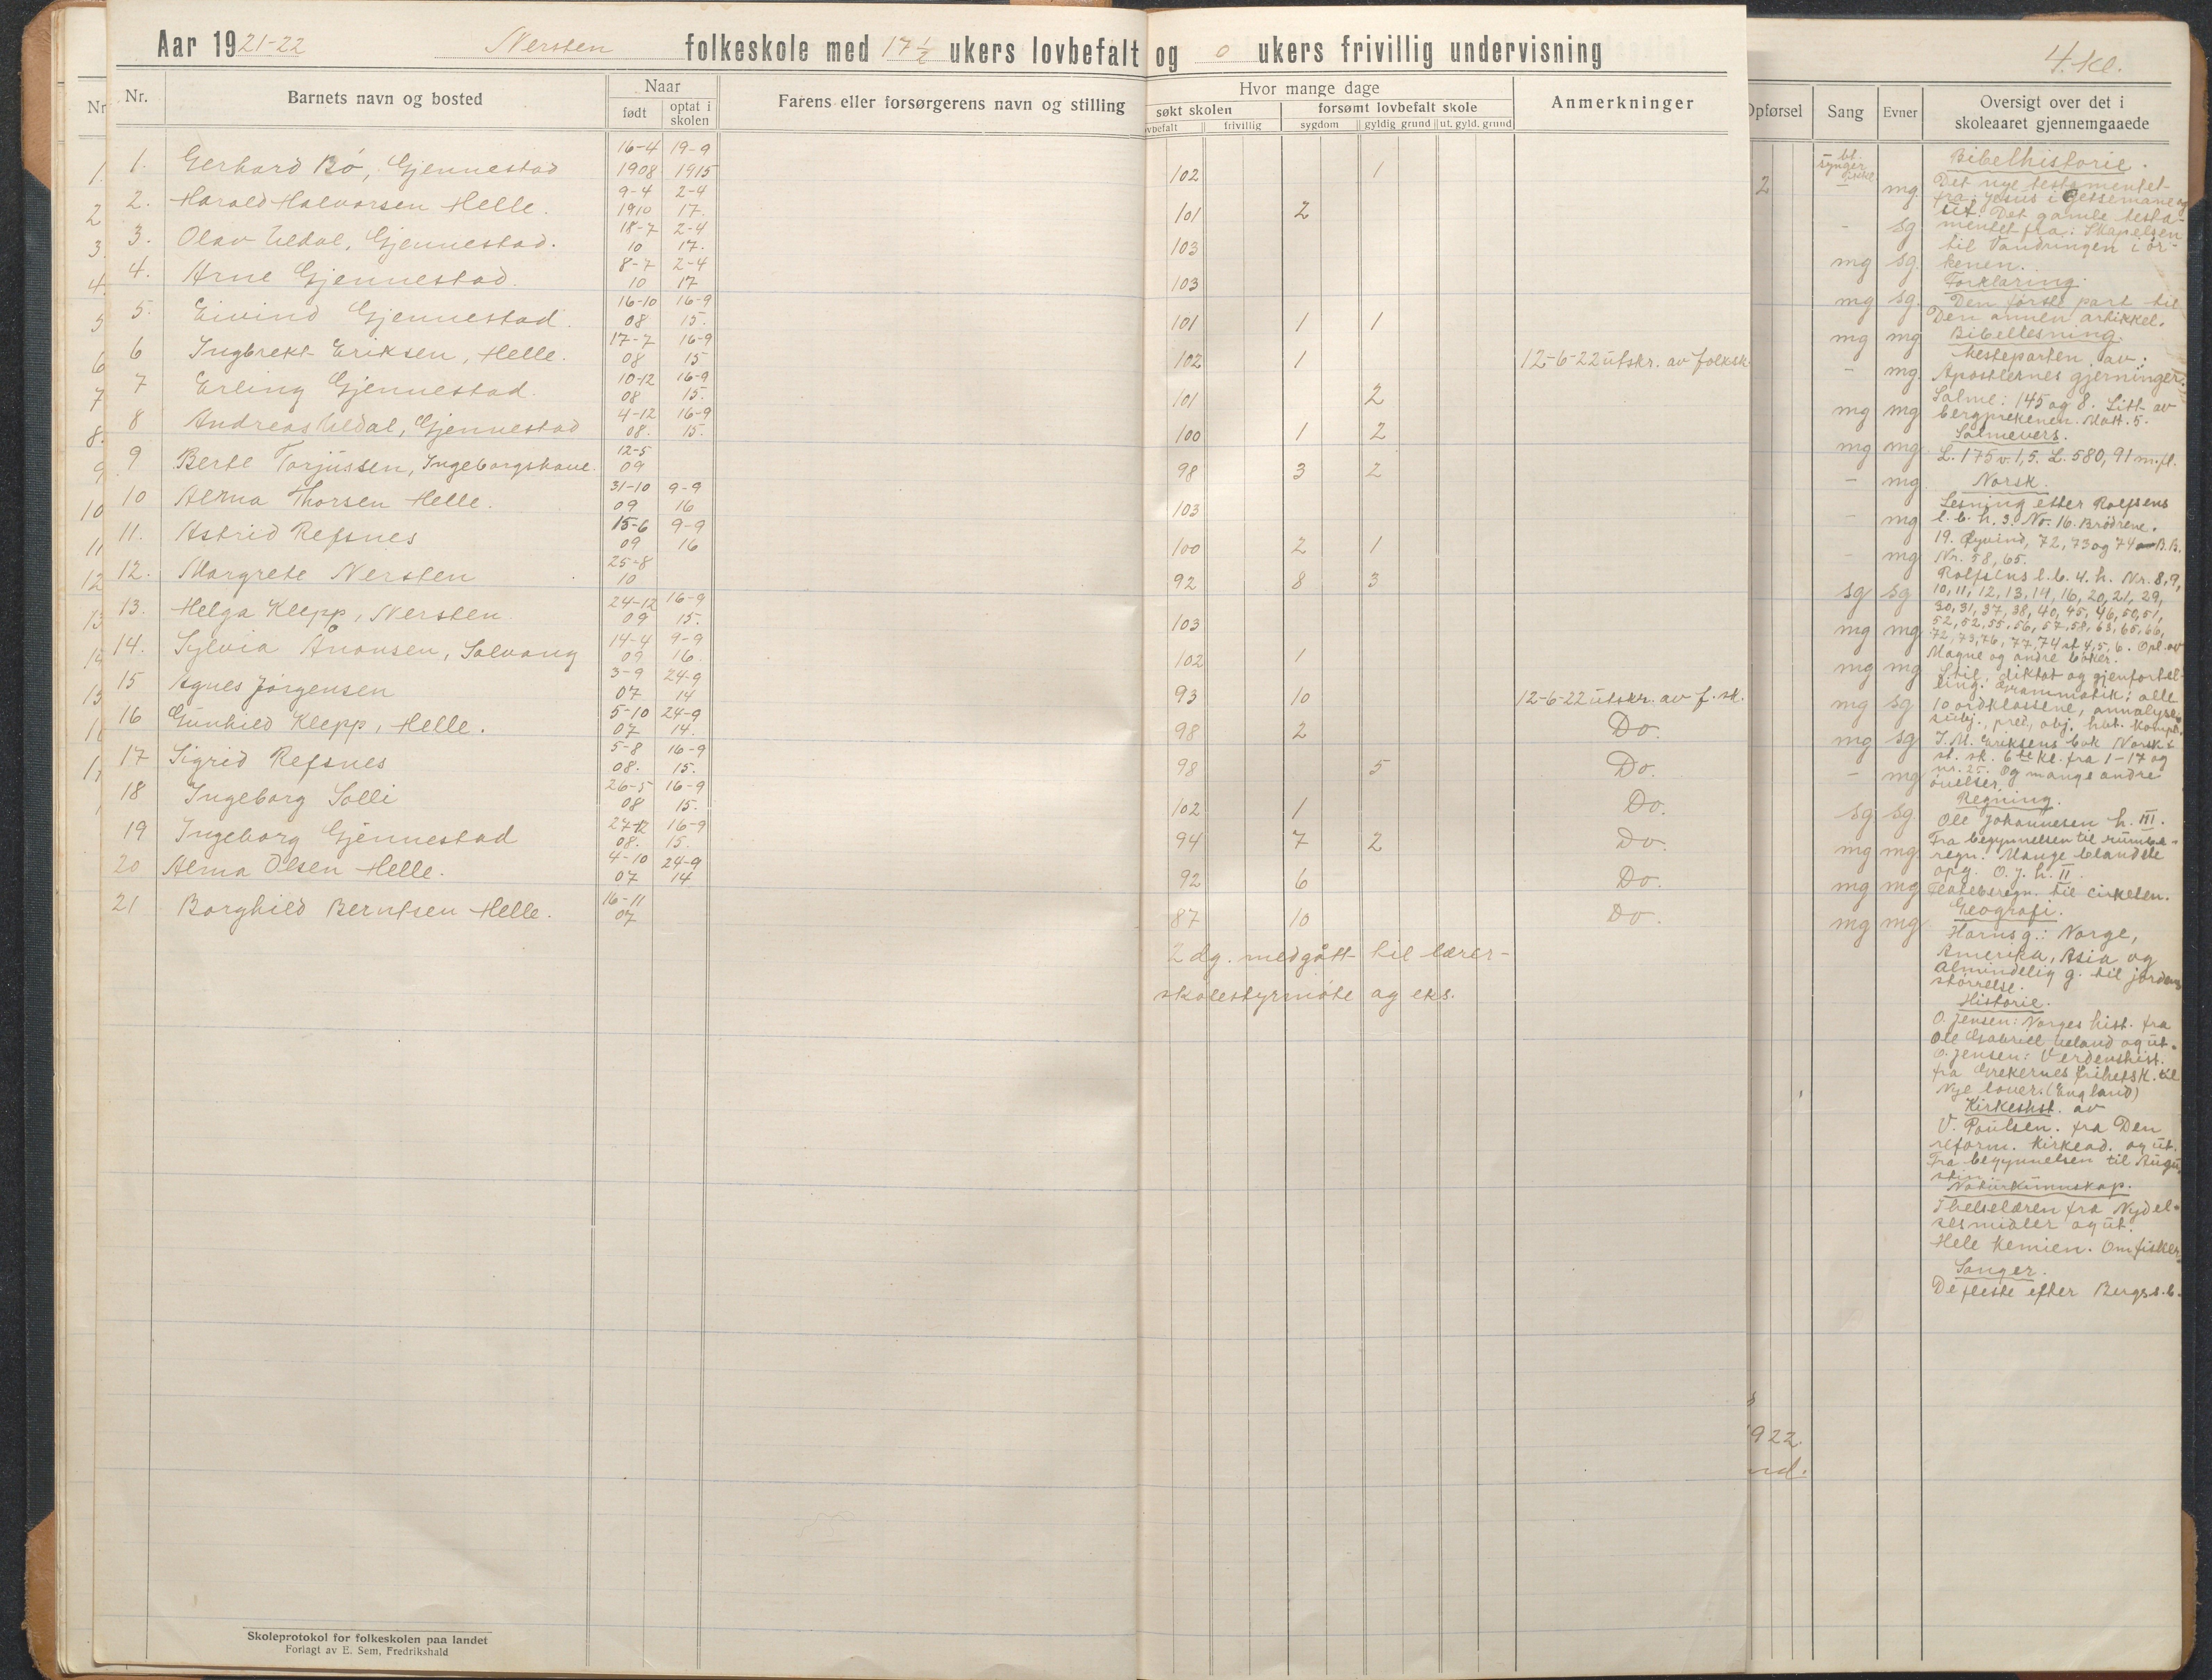 Aar 1921-22 Nersten folkeskole med 17 1/2 ukers lovbefalt og 0 ukers frivillig undervisning
4. kl.
Nr. Barnets navn og bosted Naar født optat i skolen Farens eller forsørgerens navn og stilling
Hvor mange dage søkt skolen forsømt lovbefalt skole Anmerkninger
frivillig sygdom gyldig grund ut. gyld. grund
Sang Evner Oversigt over det i skoleaaret gjennemgaaede
1. Gerhard Bö, Gjennestad 16-4 1908 19-9 1915 102 1
2. Harald Halvorsen Helle. 9-4 1910 2-4 17. 101 2
3. Olav Uldal, Gjennestad. 18-7 10 2-4 17. 103
4. Arne Gjennestad. 8-7 10 2-4 17 103
5. Eivind Gjennestad. 16-10 08 16-9 15. 101 1 1
6 Ingbrekt Eriksen, Helle. 17-7 08 16-9 15 102 1 12-6-22 utskr. av folksk.
7 Erling Gjennestad. 10-12 08 16-9 15. 101 2
8 Andreas Uldal, Gjennestad 4-12 08. 16-9 15. 100 1 2
9 Berte Torjussen, Ingeborgshave. 12-5 09 98 3 2
10 Alma Thorsen Helle. 31-10 09 9-9 16 103
11. Astrid Refsnes 15-6 09 9-9 16 100 2 1
12. Margrete Nersten 25-8 10 92 8 3
13. Helga Klepp, Nersten. 24-12 09 16-9 15. 103
14. Sylvia Ånonsen, Solvang 14-4 09 9-9 16. 102 1
15 Agnes Jörgensen 3-9 07 24-9 14 93 10 12-6-22 utskr. av f. sk.
16 Gunhild Klepp, Helle. 5-10 07 24-9 14. 98 2 Do.
17 Sigrid Refsnes 5-8 08. 16-9 15. 98 5 Do.
18 Ingeborg Solli 26-5 08 16-9 15. 102 1 Do.
19 Ingeborg Gjennestad 27-12 08. 16-9 15. 94 7 2 Do.
20 Alma Olsen Helle. 4-10 07 24-9 14 92 6 Do.
21 Borghild Berntsen Helle. 16-11 07 87 10 Do.
2 dg. medgått til lærer-
skolestyrmöte og eks.
Bibelhistorie.
Det nye testamentet
fra: Jesus i Getsemane og
ut. Det gamle testa-
mentet fra: Skapelsen
til Vandringen i ör-
kenen.
Forklaring.
Den förste part til
Den annen artikkel.
Bibellesning.
Mesteparten av:
Apostlernes gjerninger.
Salme: 145 og 8. Litt av
bergprekenen. Matt. 5.
Salmevers.
L. 175 v. 1,5. L. 580, 91 m.fl.
Norsk.
Lesning etter Rolfsens
l. b. h. 3. No. 16. Brödrene.
19. Öyvind, 72, 73 og 74 B.B.
Nr. 58, 65.
Rolfsens l. b. 4. h. Nr. 8, 9,
10, 11, 12, 13, 14, 16, 20, 21, 29,
30, 31, 37, 38, 40, 45, 46, 50, 51,
52, 52, 55, 56, 57, 58, 63, 65, 66,
72, 73, 76, 77, 74 st 4, 5, 6. Opl. av
Magne og andre böker.
Stil, diktat og gjenfortel-
ling. Grammatik: alle
10 ordklassene, annalyse,
subj., pred, obj. hbt. kompl.
J. M. Eriksens bok Norsk
st. sk. 6te kl. fra 1-17 og
nr. 25. Og mange andre
övelser.
Regning.
Ole Johannesen h. III.
Fra begynnelsen til rumbe-
regn. Mange blandede
opg. O. J. h. II.
Flateberegn. til cirkelen.
Geografi.
Horns g.: Norge,
Amerika, Asia og
almindelig g. til jordens
störrelse.
Historie.
O. Jensen: Norges hist. fra
Ole Gabriel Ueland og ut.
O. Jensen: Verdenshist.
fra Grekernes frihetsk. til
Nye lover. (England)
Kirkeshst. av
V. Poulsen. fra Den
reform. kirkead. og ut.
Fra begynnelsen til Augu-
stin.
Naturkunnskap.
Thelselæren fra Nydel-
sesmidler og ut.
Hele kemien. Om fisker.
Sanger.
De fleste efter Bergs s. b.
Skoleprotokol for folkeskolen paa landet
Forlagt av E. Sem, Fredrikshald